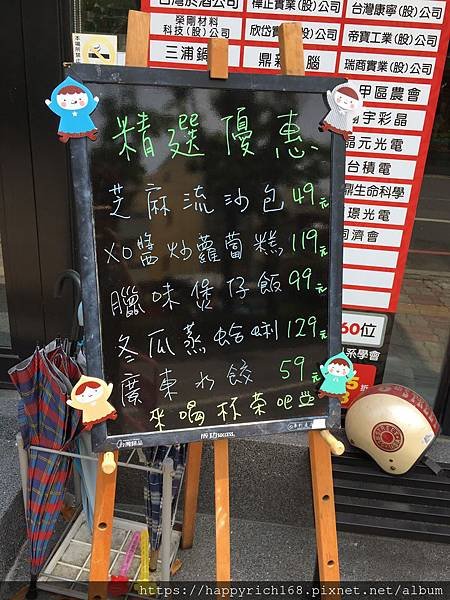 台灣菸酒(股)公司
樺正實業(股)公司
台灣康寧(股)公司
榮剛材料
科技(股)公司
欣岱實業(股)公司
帝寶工業(股)公司
三浦鍋
鼎新 腦
瑞商實業(股)公司
甲區農會
宇彩晶
晶元光電
台積電
鼎生命科學
璟光電
同濟會
60位
系學會
精選優惠
芝麻流沙包 49元
XO醬炒蘿蔔糕 119元
臘味煲仔飯 99元
冬瓜蒸蛤蜊 129元
廣東水餃 59元
來喝杯茶吧
SUCCESS
https://happyrich168.pixnet.net/album